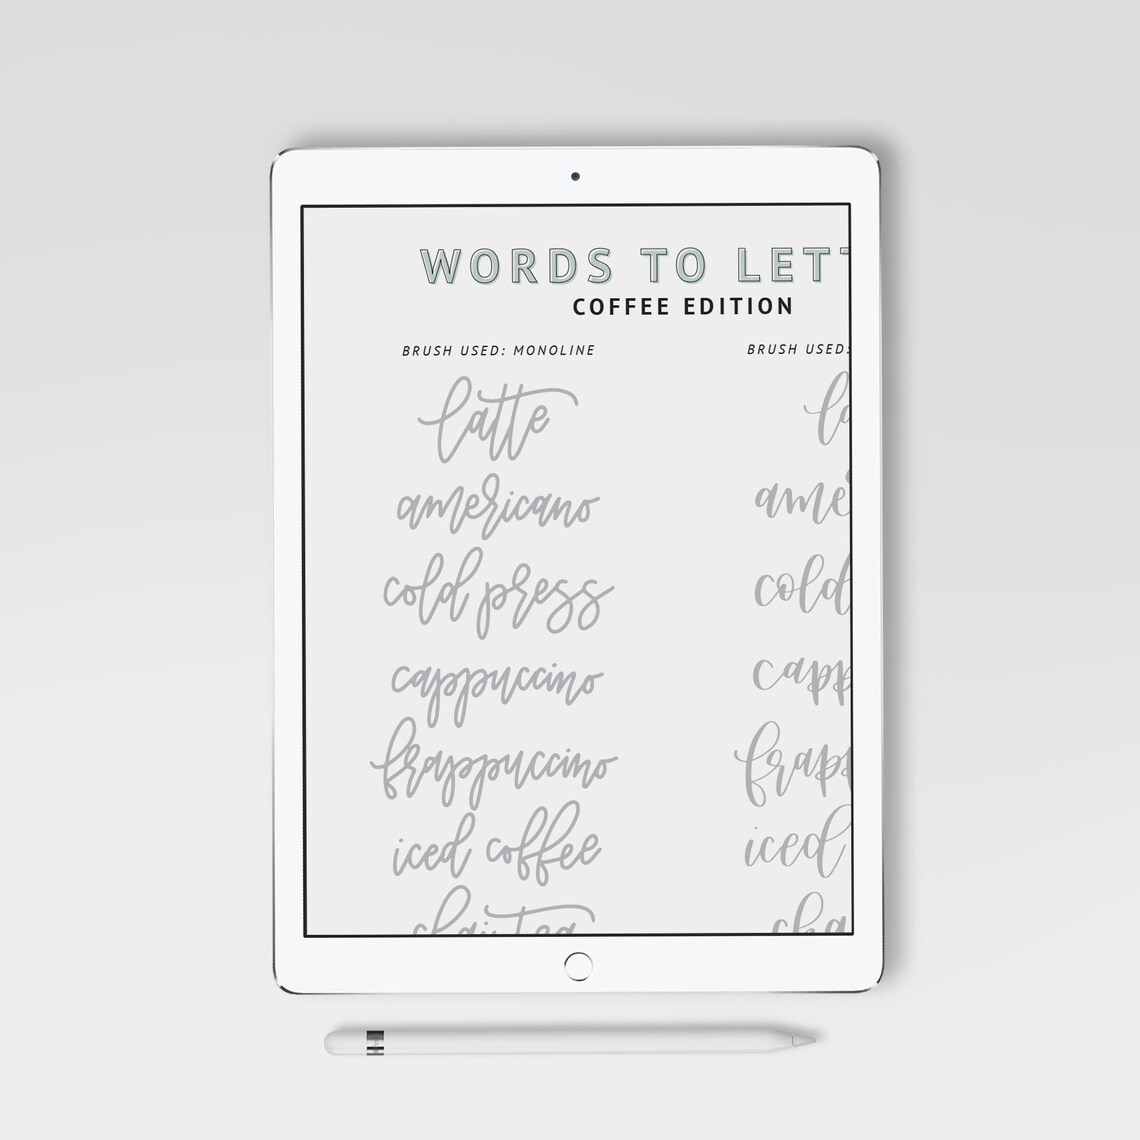 WORDS TO LETT
COFFEE EDITION
BRUSH USED: MONOLINE
latte
americano
cold press
cappuccino
frappuccino
iced coffee
chai tea
BRUSH USED:
la
ame
cold
capp
frapp
iced
cha